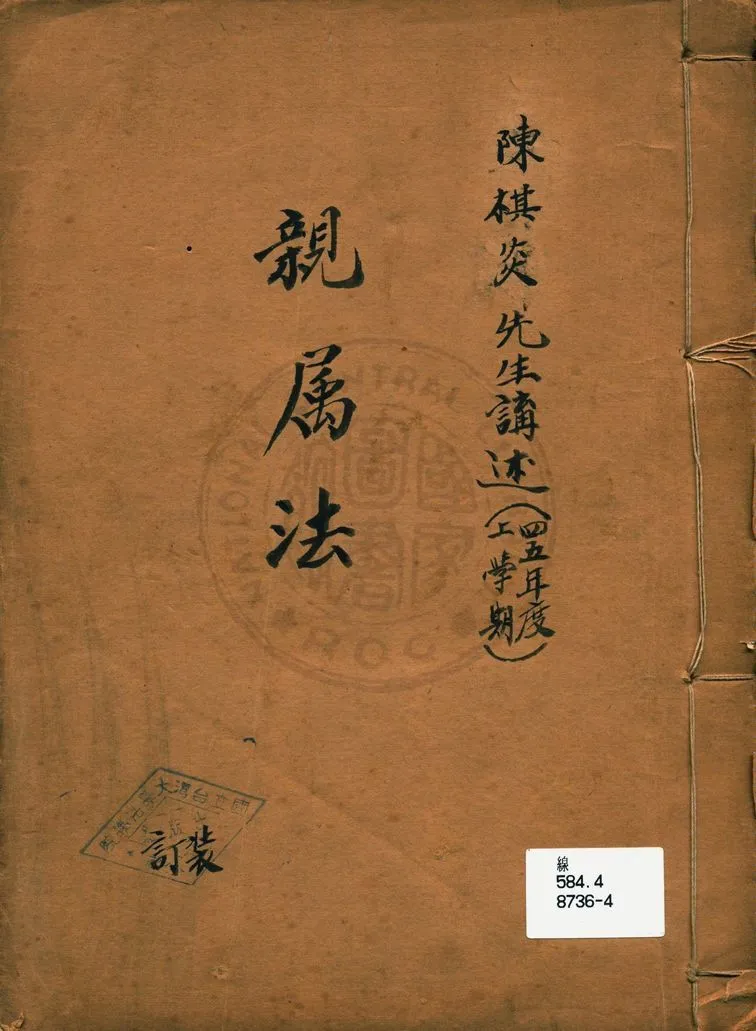 陳棋炎先生講述(四五年度上學期)
親属法
國立台灣大學
装訂
線
584.4
8736-4